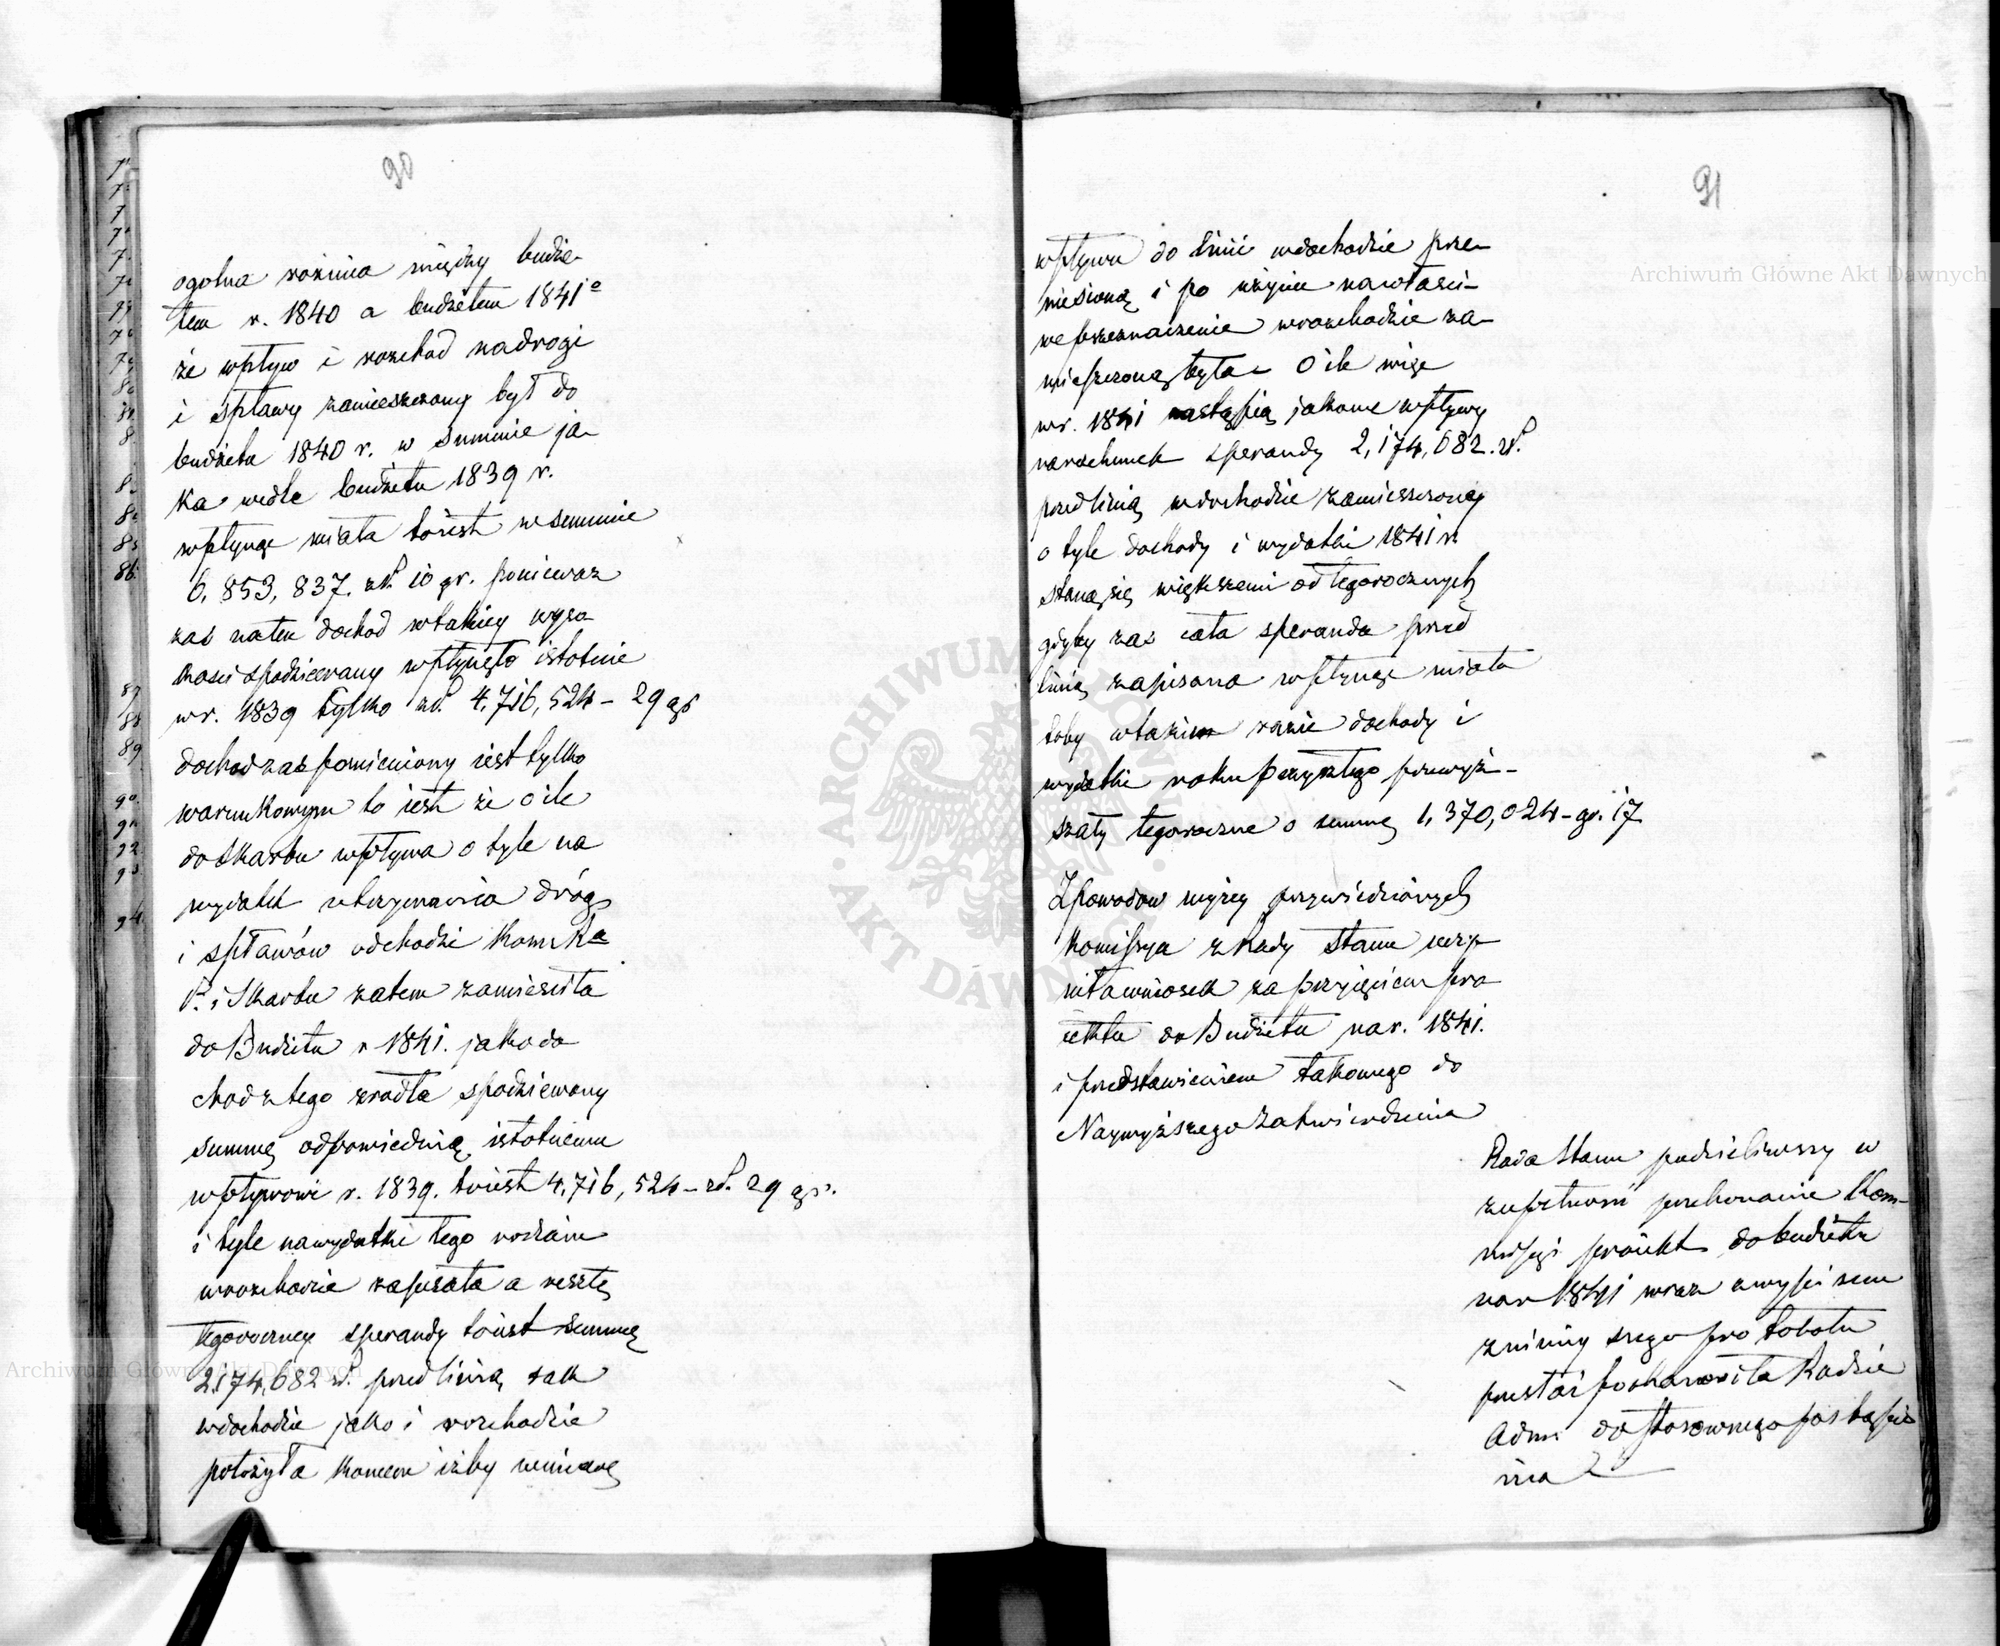 90
ogolna rożnica między budże-
tem r. 1840 a budżetem 1841o
że wpływ i rozchod na drogi
i spławy zamieszczony był do
budżetu 1840 r. w summie ja-
ka wedle budżetu 1839 r.
wpłynąc miała to iest w summie
6,853,837. zł. 10 gr. ponieważ
zaś na ten dochod w takiey wyso-
kosci spodziewany wpłynęło istotnie
w r. 1839 tylko zł. 4,716,524 – 29 gr
dochod zaś pomieniony iest tylko
warunkowym to iest że o ile
do skarbu wpływa o tyle na
wydatek utrzymania dróg
i spławów odchodzi Kom. Ka
P. i Skarbu zatem zamieściła
do Budżetu r 1841. jako do
chod z tego zrodła spodziewany
summę odpowiednią istotnemu
wpływowi r. 1839. to iest 4,716,524 – zł. 29 gr.
i tyle na wydatki tego rodzaiu
w rozchodzie zapisała a resztę
tegoroczney sperandy to iest summę
2,174,682 zł. przed linią tak
w dochodzie jako i rozchodzie
położyła koncem iżby w miarę
91
wpływu do linii w dochodzie prze-
niesioną i po użyciu na właści-
we przeznaczenie w rozchodzie za-
mieszczoną była – O ile więc
w r. 1841 nastąpią jakowe wpływy
na rachunek sperandy 2,174,682. zł.
przed linią w dochodzie zamieszczoney
o tyle dochody i wydatki 1841 r.
staną się większemi od tegorocznych
gdyby zaś cała speranda przed
linią zapisana wpłynąc miała
toby w takim razie dochody i
wydatki roku przyszłego przewyż-
szały tegoroczne o summę 1,370,024 – gr. 17
Z powodow wyżey przywiedzionych
Kommissya z Rady Stanu uczy-
niła wniosek za przyięciem pro
iektu do Budżetu na r. 1841.
i przedstawieniem takowego do
Naywyższego zatwierdzenia
Rada Stanu podzieliwszy w
zupełności przekonanie Kom-
missyi proiekt do budżetu
na r 1841 wraz z wypisem
z niniejszego protokołu
przesłać postanowiła Radzie
Adm. do stosownego postąpie
nia